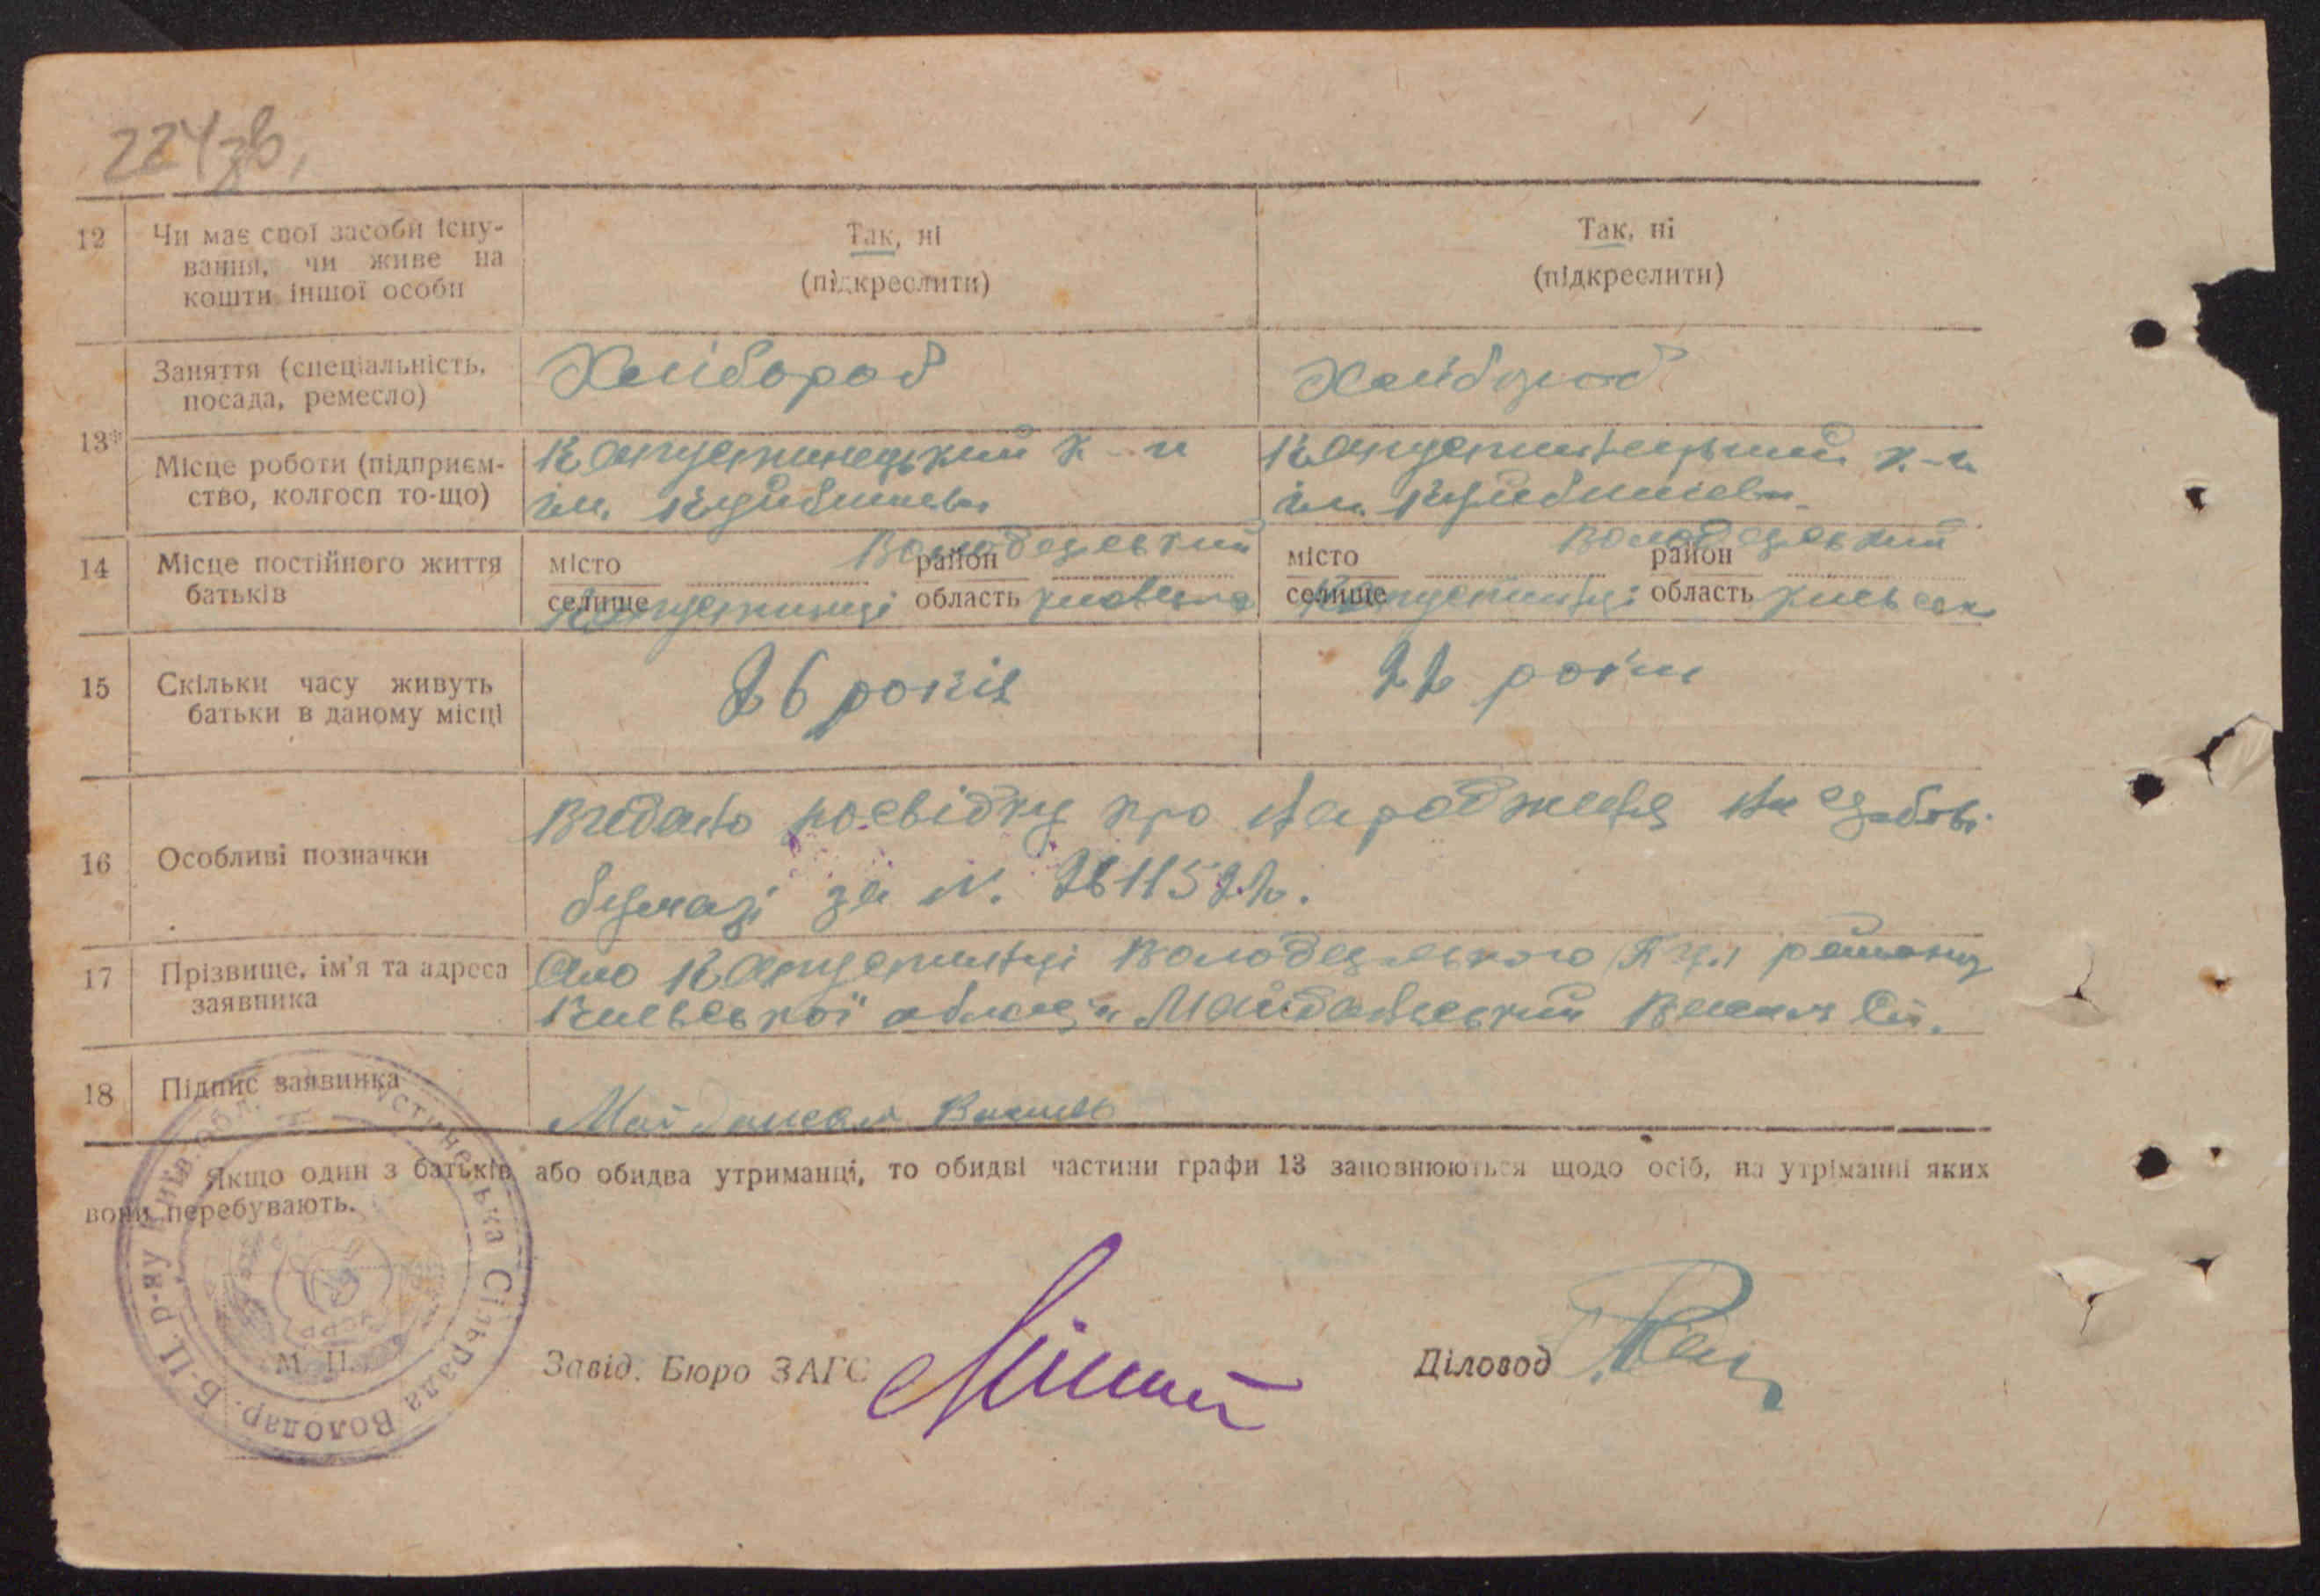 224зв.
12 Чи має свої засоби існу-
вання, чи живе на
кошти іншої особи
Так, ні
(підкреслити)
Так, ні
(підкреслити)
13*
Заняття (спеціальність,
посада, ремесло)
Хлібороб
Хлібороб
Місце роботи (підприєм-
ство, колгосп то-що)
Капустинецький к-п
ім. Куйбишева
Капустинецький к-п
ім. Куйбишева
14 Місце постійного життя
батьків
місто район Володарський
селище Капустинці область Київська
місто район Володарський
селище Капустинці область Київська
15 Скільки часу живуть
батьки в даному місці
26 років
22 роки
16 Особливі позначки
Видано посвідку про народження на гербові
бумазі за N. 2611522.
17 Прізвище, ім'я та адреса
заявника
Село Капустинці Володарського району
Київської області Майданський Василь
18 Підпис заявника
Майданский Василь
Якщо один з батьків або обидва утриманці, то обидві частини графи 13 заповнюються щодо осіб, на утріманні яких
вони перебувають.
М. П.
Завід. Бюро ЗАГС
Діловод
стинецька Сільрада Володар. Б-Ц. р-ну Київ. обл.